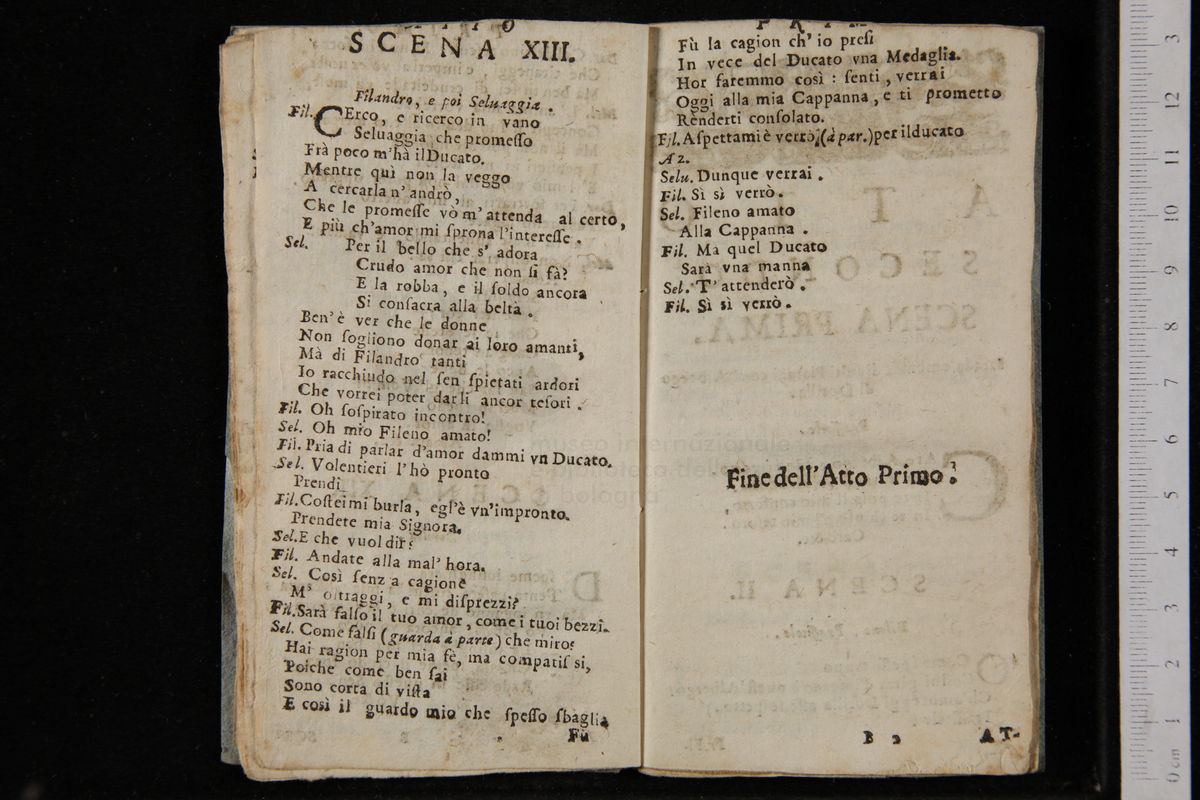 SCENA XIII.
Filandro, e poi Seluaggia.
Fil. CErco, e ricerco in vano
Seluaggia che promeſſo
Frà poco m'hà ilDucato.
Mentre quì non la veggo
A cercarla n'andrò,
Che le promeſſe vò m'attenda al certo,
E più ch'amor mi ſprona l'intereſſe.
Sel. Per il bello che s'adora
Crudo amor che non ſi fà?
E la robba, e il ſoldo ancora
Si conſacra alla beltà.
Ben'è ver che le donne
Non ſogliono donar ai loro amanti,
Mà di Filandro tanti
Io racchiudo nel ſen ſpietati ardori
Che vorrei poter darli ancor teſori.
Fil. Oh ſoſpirato incontro!
Sel. Oh mio Fileno amato!
Fil. Pria di parlar d'amor dammi vn Ducato.
Sel. Volentieri l'hò pronto
Prendi
Fil. Coſtei mi burla, egl'è vn'impronto.
Prendete mia Signora.
Sel. E che vuol dir?
Fil. Andate alla mal'hora.
Sel. Così ſenz a cagione
M' oltraggi, e mi diſprezzi?
Fil. Sarà falſo il tuo amor, come i tuoi bezzi.
Sel. Come falſi (guarda à parte) che miro?
Hai ragion per mia fè, ma compatiſ si,
Poiche come ben ſai
Sono corta di viſta
E così il guardo mio che ſpeſſo ſbaglia
Fù
Fù la cagion ch'io preſi
In vece del Ducato vna Medaglia.
Hor faremmo così: ſenti, verrai
Oggi alla mia Cappanna, e ti prometto
Renderti conſolato.
Fil. Aſpettami è verrò, (à par.) per ilducato
A 2.
Selu. Dunque verrai.
Fil. Sì sì verrò.
Sel. Fileno amato
Alla Cappanna.
Fil. Ma quel Ducato
Sarà vna manna
Sel. T'attenderò.
Fil. Sì sì verrò.
Fine dell'Atto Primo.
B 2 AT-
museo internazionale
biblioteca della
bologna